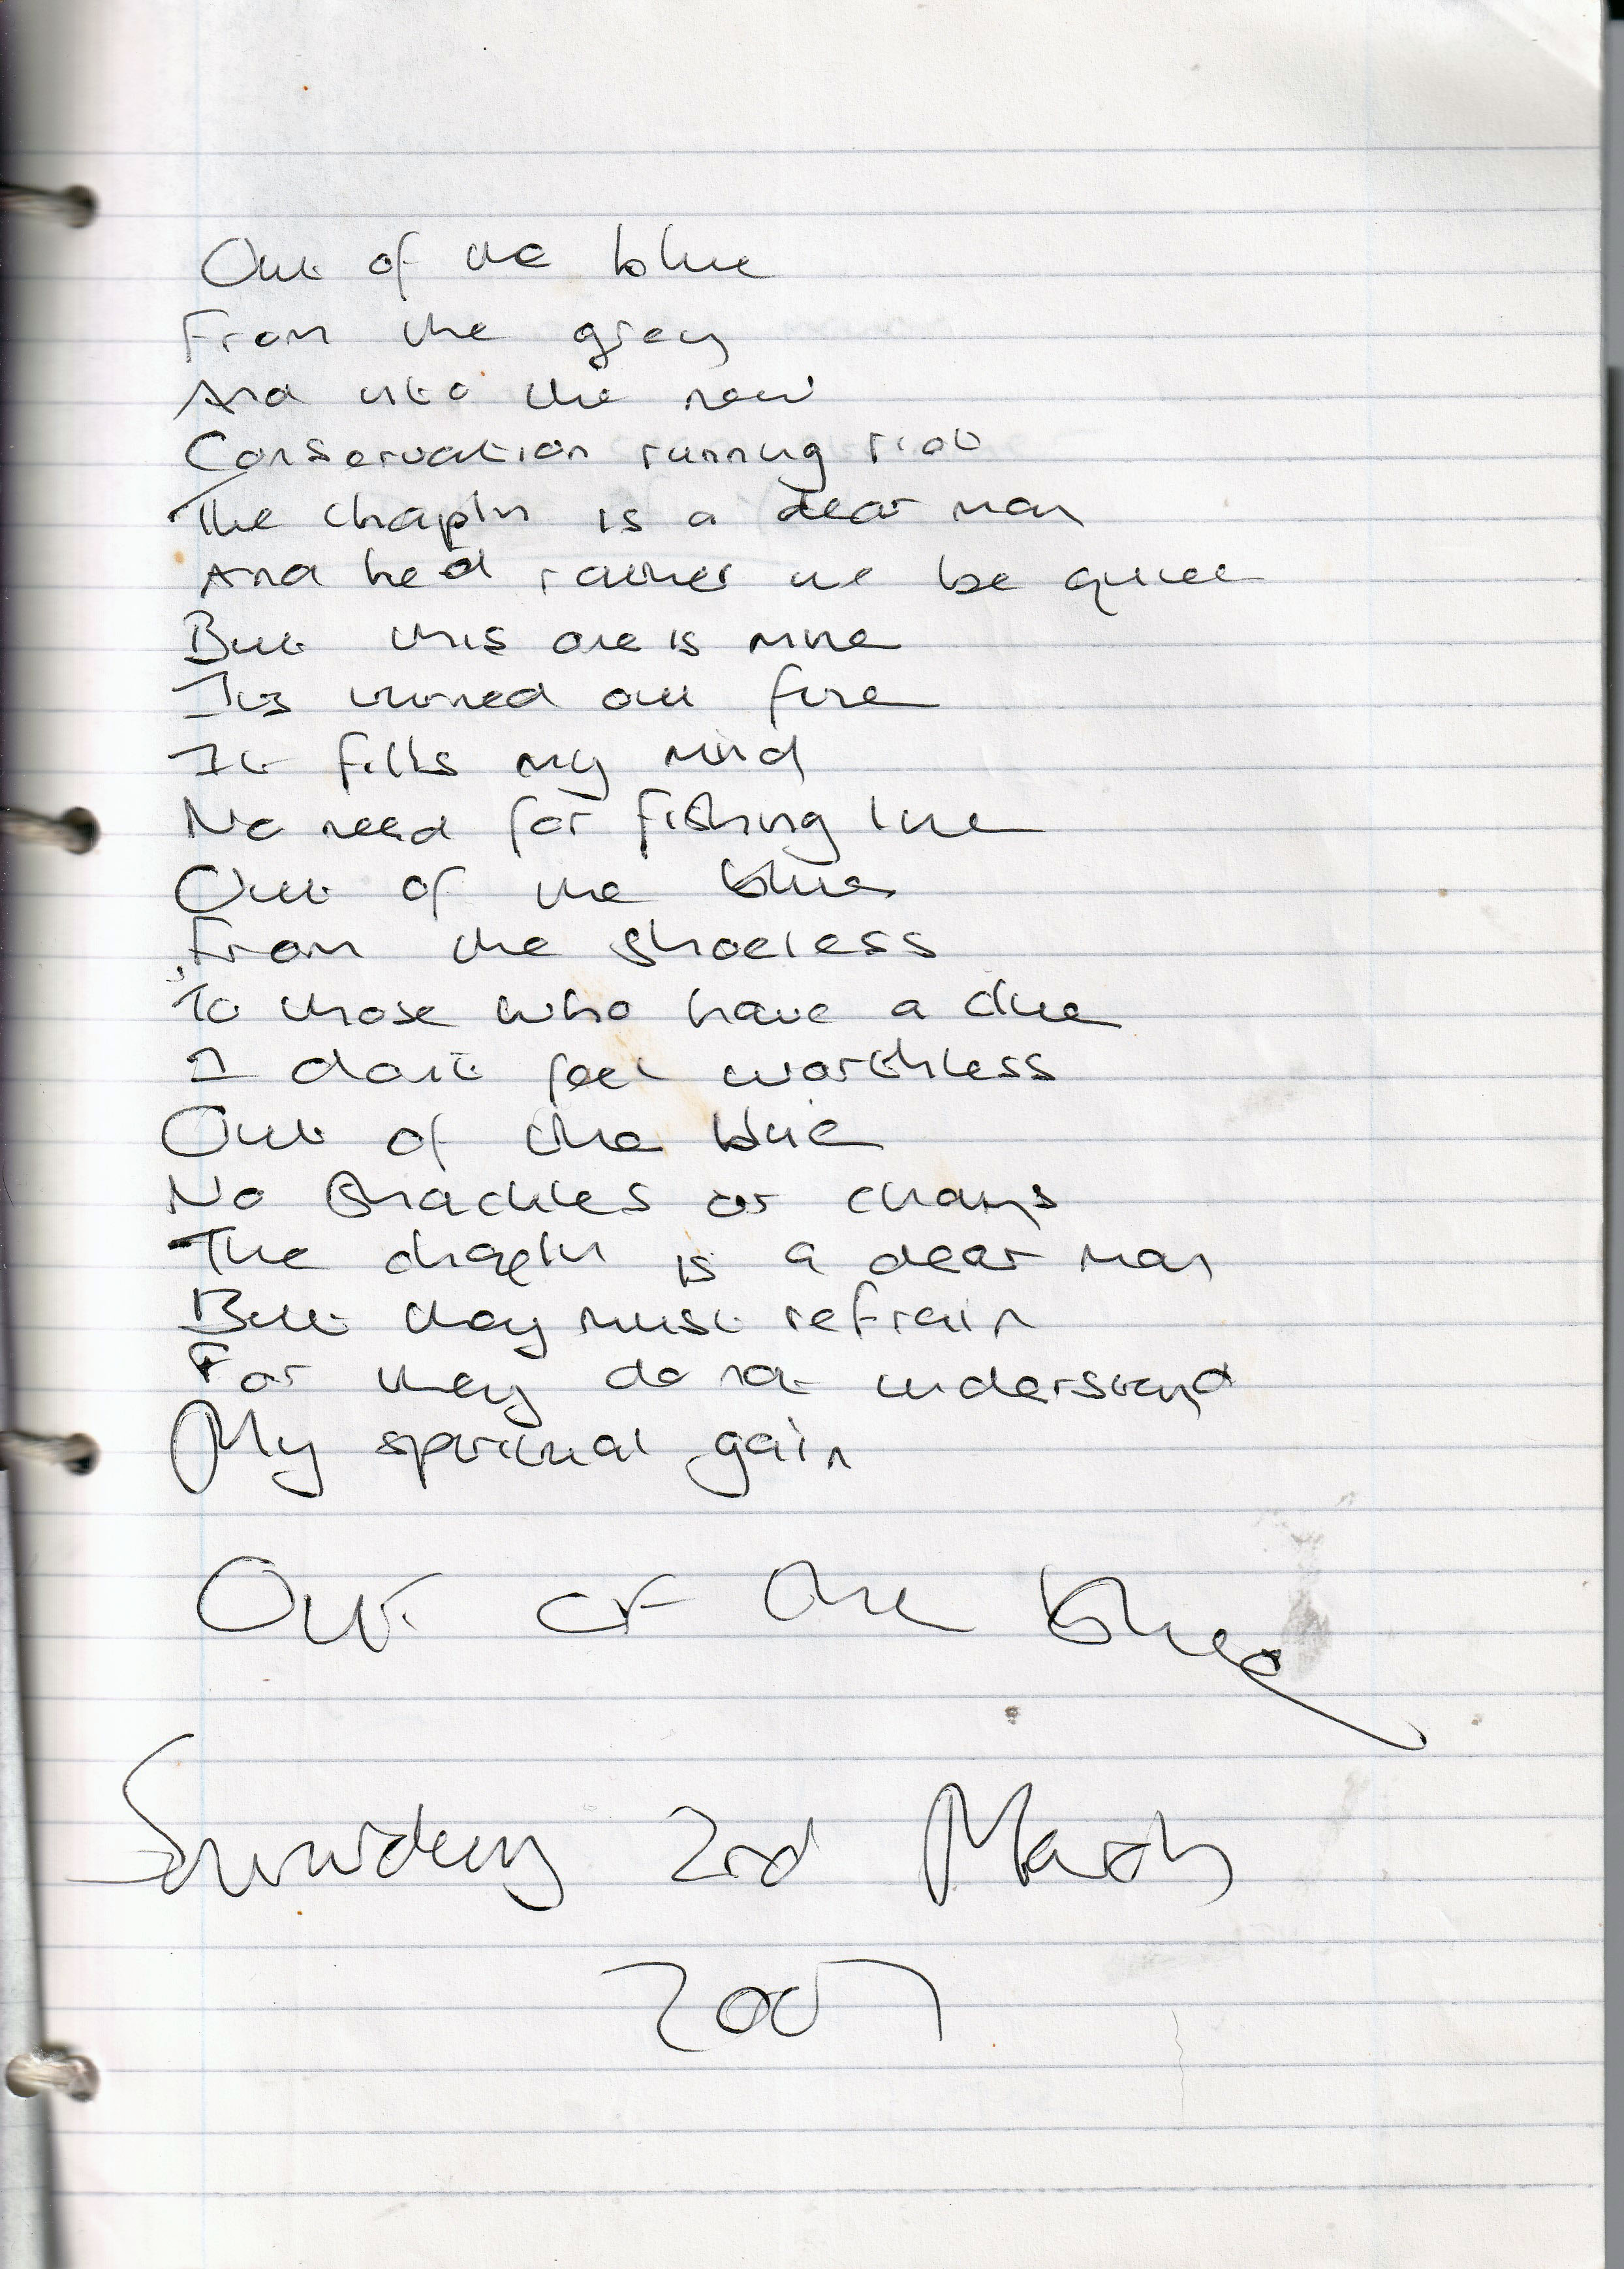 Out of the blue
From the grey
And into the new
Conservation running riot
The chapln is a dear man
And he'd rather we be quiet
But this one is mine
Its turned out fine
It fills my mind
No need for fishing line
Out of the blue
From the shoeless
To those who have a clue
I don't feel worthless
Out of the blue
No Shackles or chains
The chapln is a dear man
But they must refrain
For they do not understand
My spiritual gain
Out of the blue
2nd March
2007